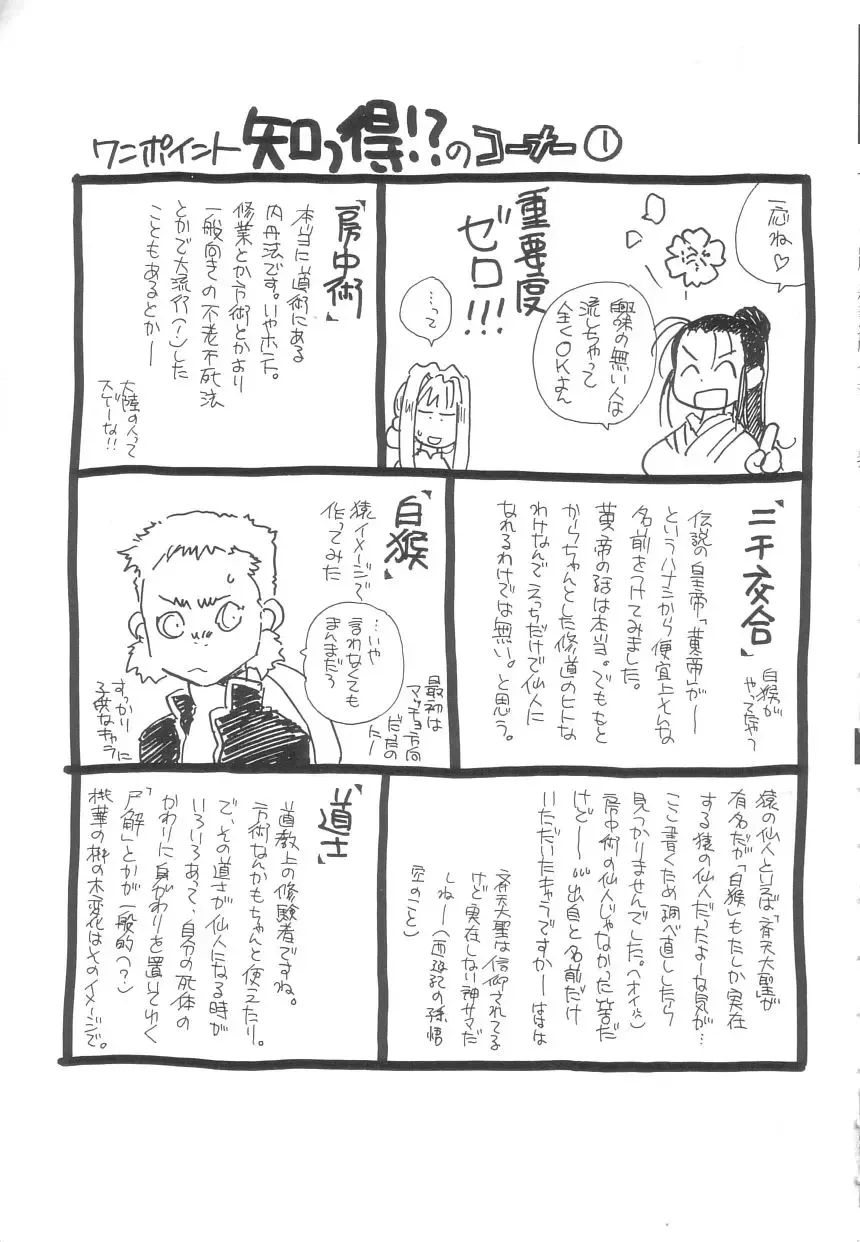 ワンポイント知っ得!?のコーナー①
一応ね♡
重要度
ゼロ!!!
興味の無い人は
流しちゃって
全くOKよん
…って
「房中術」
本当に道術にある
内丹法です。いやホント。
修業とか方術とかより
一般向きの不老不死法
とかで大流行(?)した
こともあるとかー
大陸の人って
スゲーな!!
「二千交合」
白猴が
やってたやつ
伝説の皇帝「黄帝」が―
というハナシから便宜上そんな
名前をつけてみました。
黄帝の話は本当。でももと
からちゃんとした修道のヒトな
わけなんでえっちだけで仙人に
なれるわけでは無い。と思う。
「白猴」
猿イメージで
作ってみた
…いや
言わなくても
まんまだろ
最初は
マッチョ方向
だったの
だー
すっかり
子供なキャラに
猿の仙人といえば「斉天大聖」が
有名だが「白猴」もたしか実在
する猿の仙人だったよーな気が…
ここ書くため調べ直ししたら
見つかりませんでした。(オイ)
房中術の仙人じゃなかった筈だ
けど――…出自と名前だけ
いただいたキャラですかーははは
斉天大聖は信仰されてる
けど実在しない神サマだ
しねー(西遊記の孫悟
空のこと)
「道士」
道教上の修験者ですね。
方術なんかもちゃんと使えたり。
で、その道士が仙人になる時が
いろいろあって、自分の死体の
かわりに身がわりを置いてゆく
「尸解」とかが一般的(?)
桃華の榊の木変化はそのイメージで。